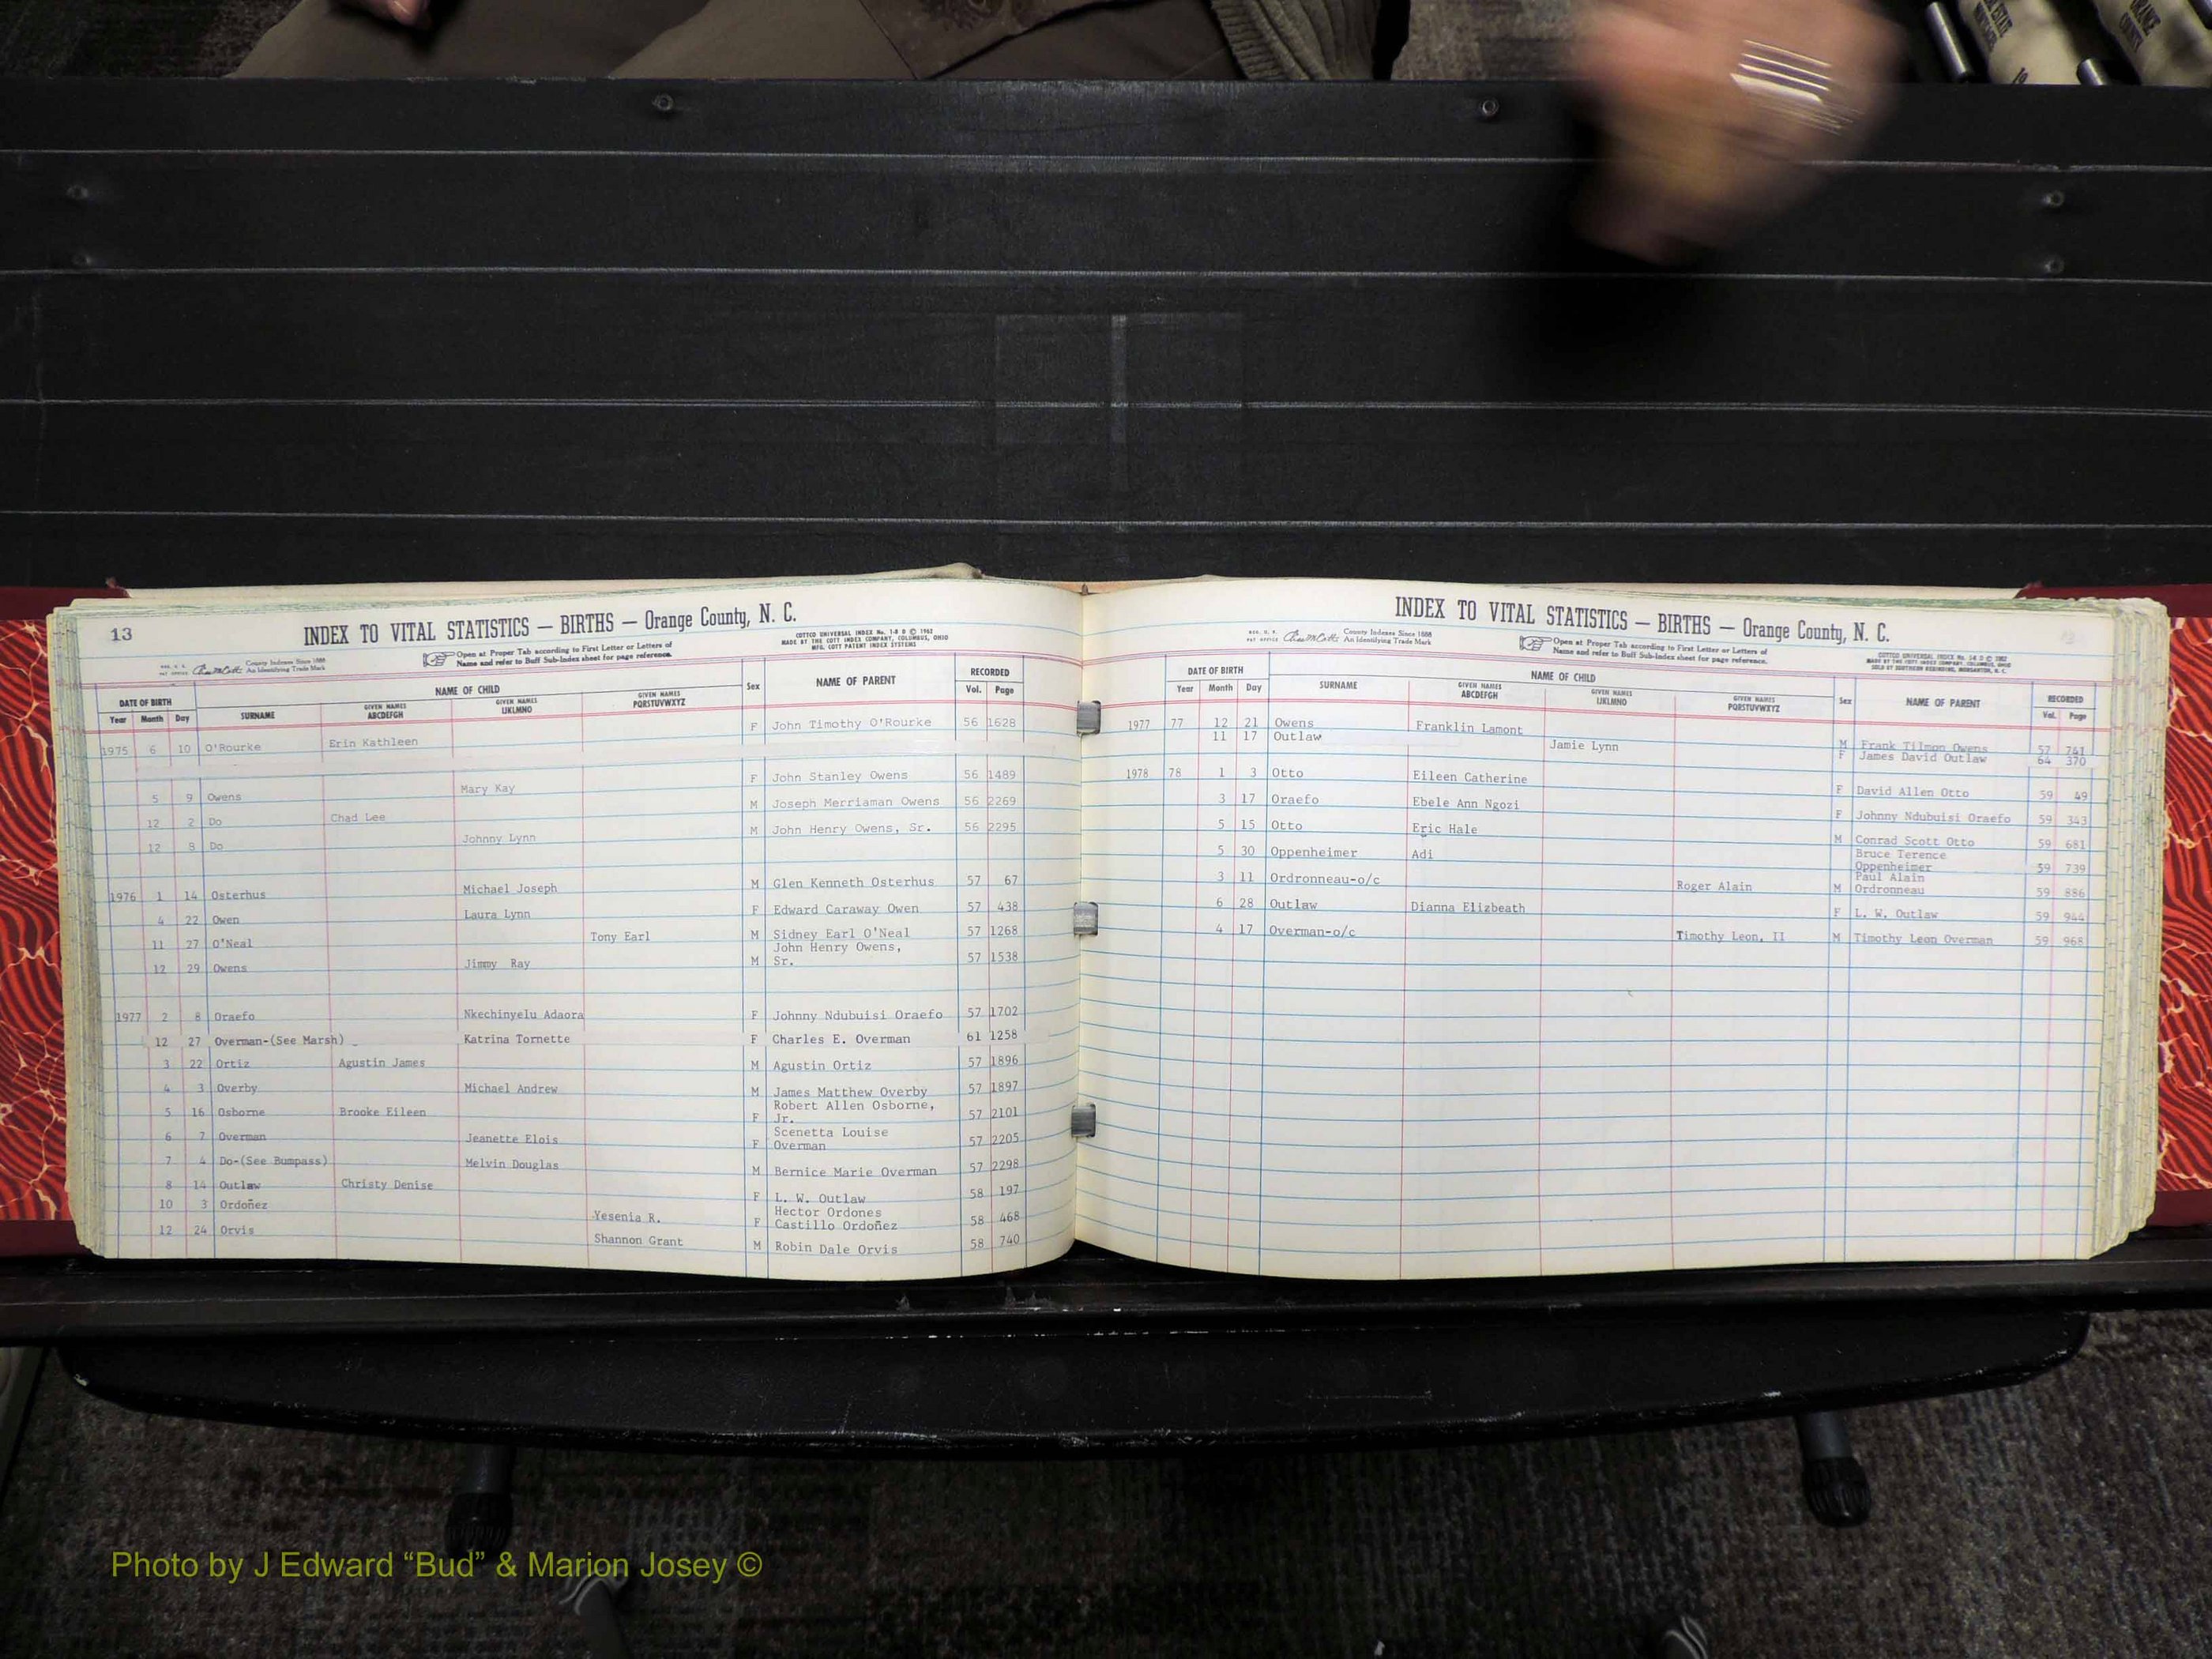 13
INDEX TO VITAL STATISTICS — BIRTHS — Orange County, N. C.
County Indexes Since 1888
An Identifying Trade Mark
Open at Proper Tab according to First Letter or Letters of
Name and refer to Buff Sub-Index sheet for page reference.
COTTCO UNIVERSAL INDEX No. 1-8 © 1962
MADE BY THE COTT INDEX COMPANY, COLUMBUS, OHIO
MFG. COTT PATENT INDEX SYSTEMS
DATE OF BIRTH NAME OF CHILD Sex NAME OF PARENT RECORDED
Year Month Day SURNAME GIVEN NAMES ABCDEFGH GIVEN NAMES IJKLMNO GIVEN NAMES PQRSTUVWXYZ Vol. Page
1975 6 10 O'Rourke Erin Kathleen F John Timothy O'Rourke 56 1628
5 9 Owens Mary Kay F John Stanley Owens 56 1489
12 2 Do Chad Lee M Joseph Merriaman Owens 56 2269
12 8 Do Johnny Lynn M John Henry Owens, Sr. 56 2295
1976 1 14 Osterhus Michael Joseph M Glen Kenneth Osterhus 57 67
4 22 Owen Laura Lynn F Edward Caraway Owen 57 438
11 27 O'Neal Tony Earl M Sidney Earl O'Neal 57 1268
John Henry Owens,
12 29 Owens Jimmy Ray M Sr. 57 1538
1977 2 8 Oraefo Nkechinyelu Adaora F Johnny Ndubuisi Oraefo 57 1702
12 27 Overman-(See Marsh) Katrina Tornette F Charles E. Overman 61 1258
3 22 Ortiz Agustin James M Agustin Ortiz 57 1896
4 3 Overby Michael Andrew M James Matthew Overby 57 1897
Robert Allen Osborne,
5 16 Osborne Brooke Eileen F Jr. 57 2101
Scenetta Louise
6 7 Overman Jeanette Elois F Overman 57 2205
7 4 Do-(See Bumpass) Melvin Douglas M Bernice Marie Overman 57 2298
8 14 Outlaw Christy Denise F L. W. Outlaw 58 197
Hector Ordones
10 3 Ordoñez Yesenia R. F Castillo Ordoñez 58 468
12 24 Orvis Shannon Grant M Robin Dale Orvis 58 740
INDEX TO VITAL STATISTICS — BIRTHS — Orange County, N. C.
County Indexes Since 1888
An Identifying Trade Mark
Open at Proper Tab according to First Letter or Letters of
Name and refer to Buff Sub-Index sheet for page reference.
DATE OF BIRTH NAME OF CHILD Sex NAME OF PARENT RECORDED
Year Month Day SURNAME GIVEN NAMES ABCDEFGH GIVEN NAMES IJKLMNO GIVEN NAMES PQRSTUVWXYZ Vol. Page
1977 77 12 21 Owens Franklin Lamont M Frank Tilmon Owens 57 741
11 17 Outlaw Jamie Lynn F James David Outlaw 64 370
1978 78 1 3 Otto Eileen Catherine F David Allen Otto 59 49
3 17 Oraefo Ebele Ann Ngozi F Johnny Ndubuisi Oraefo 59 343
5 15 Otto Eric Hale M Conrad Scott Otto 59 681
Bruce Terence
5 30 Oppenheimer Adi Oppenheimer 59 739
Paul Alain
3 11 Ordronneau-o/c Roger Alain M Ordronneau 59 886
6 28 Outlaw Dianna Elizbeath F L. W. Outlaw 59 944
4 17 Overman-o/c Timothy Leon, II M Timothy Leon Overman 59 968
Photo by J Edward “Bud” & Marion Josey ©